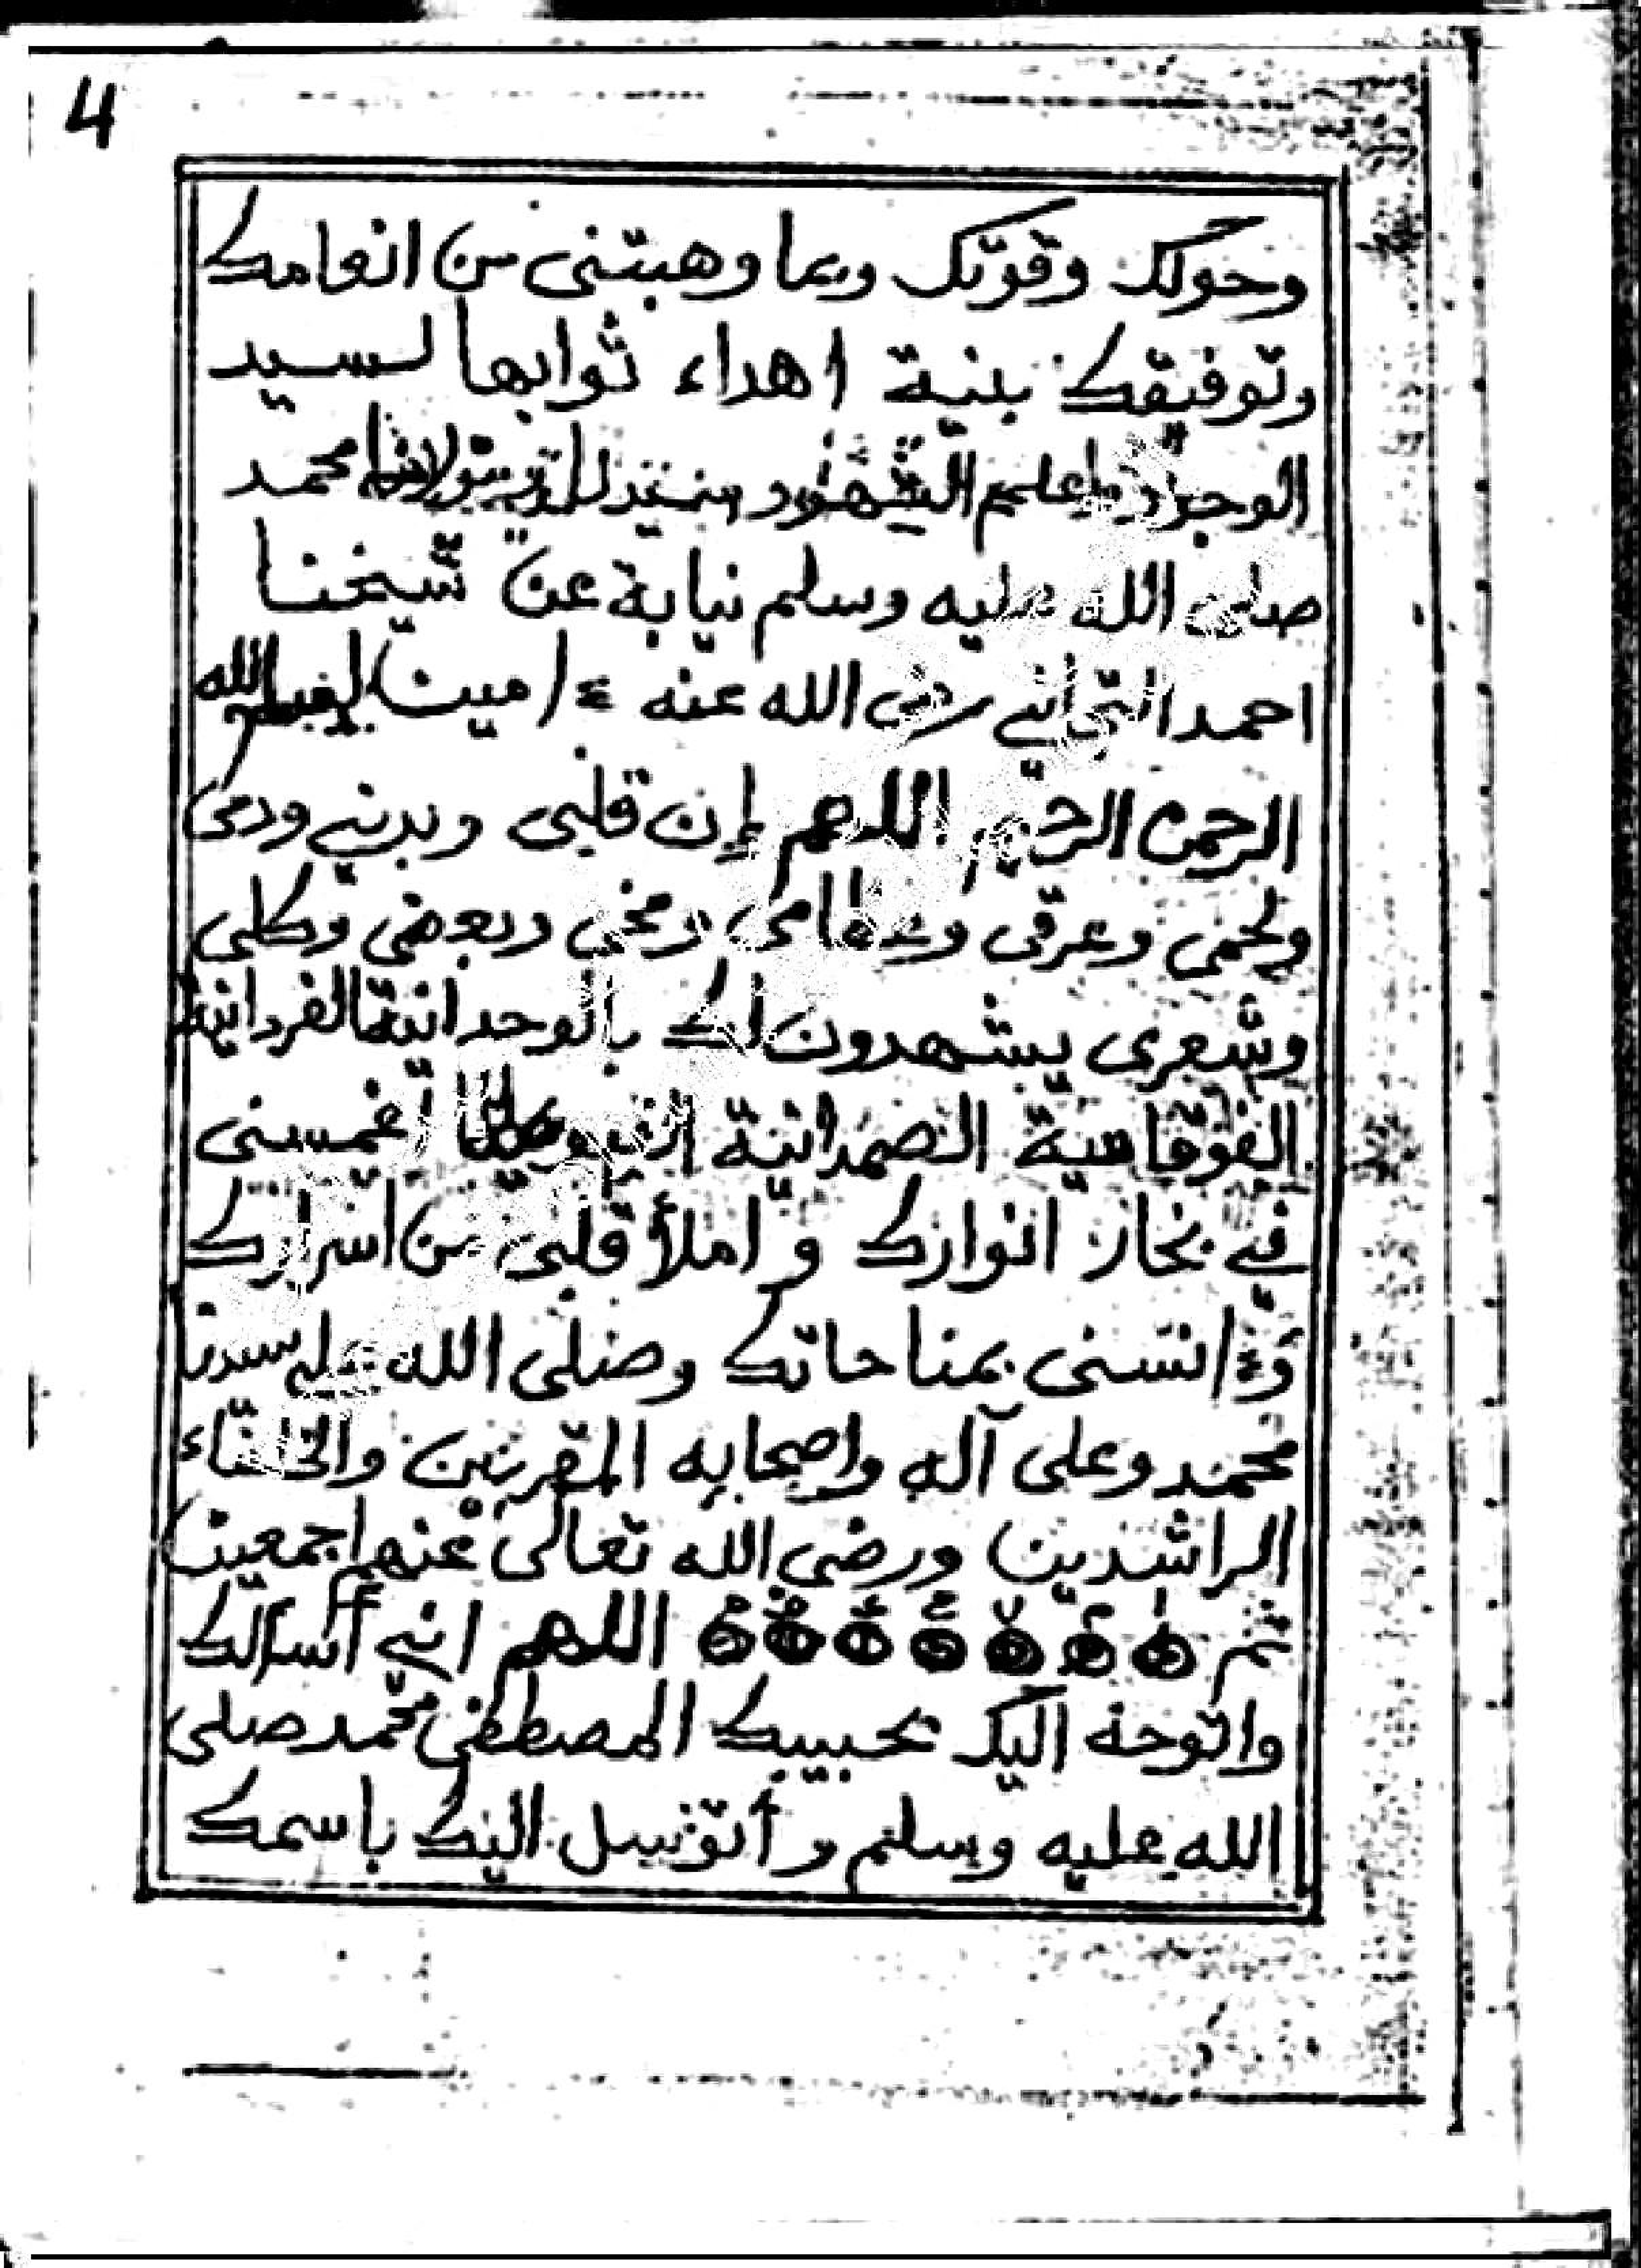 4
وحولك وقوتك وبما وهبتنى من انعامك
وتوفيقك بنية اهداء ثوابها لسيد
الوجود وعلم الشهود سيدنا محمد
صلى الله عليه وسلم نيابة عن شيخنا
احمد التجاني رضى الله عنه ءامين الله
الرحمن الرحيم اللهم إن قلبى وبدني ودمى
ولحمى وعرقى وعظامى ومخى وبعضى وكلى
وشعرى يشهدون لك بالوحدانية الفردانية
الصمدانية أغمسنى
في بحار انوارك و املأ قلبى من اسرارك
وءانسنى بمناحاتك وصلى الله على سيدنا
محمد وعلى آله واصحابه المقربين والخلفاء
الراشدين ورضى الله تعالى عنهم اجمعين
ثم اللهم اني أسألك
واتوجه اليك بحبيبك المصطفى محمد صلى
الله عليه وسلم وأتوسل اليك باسمك